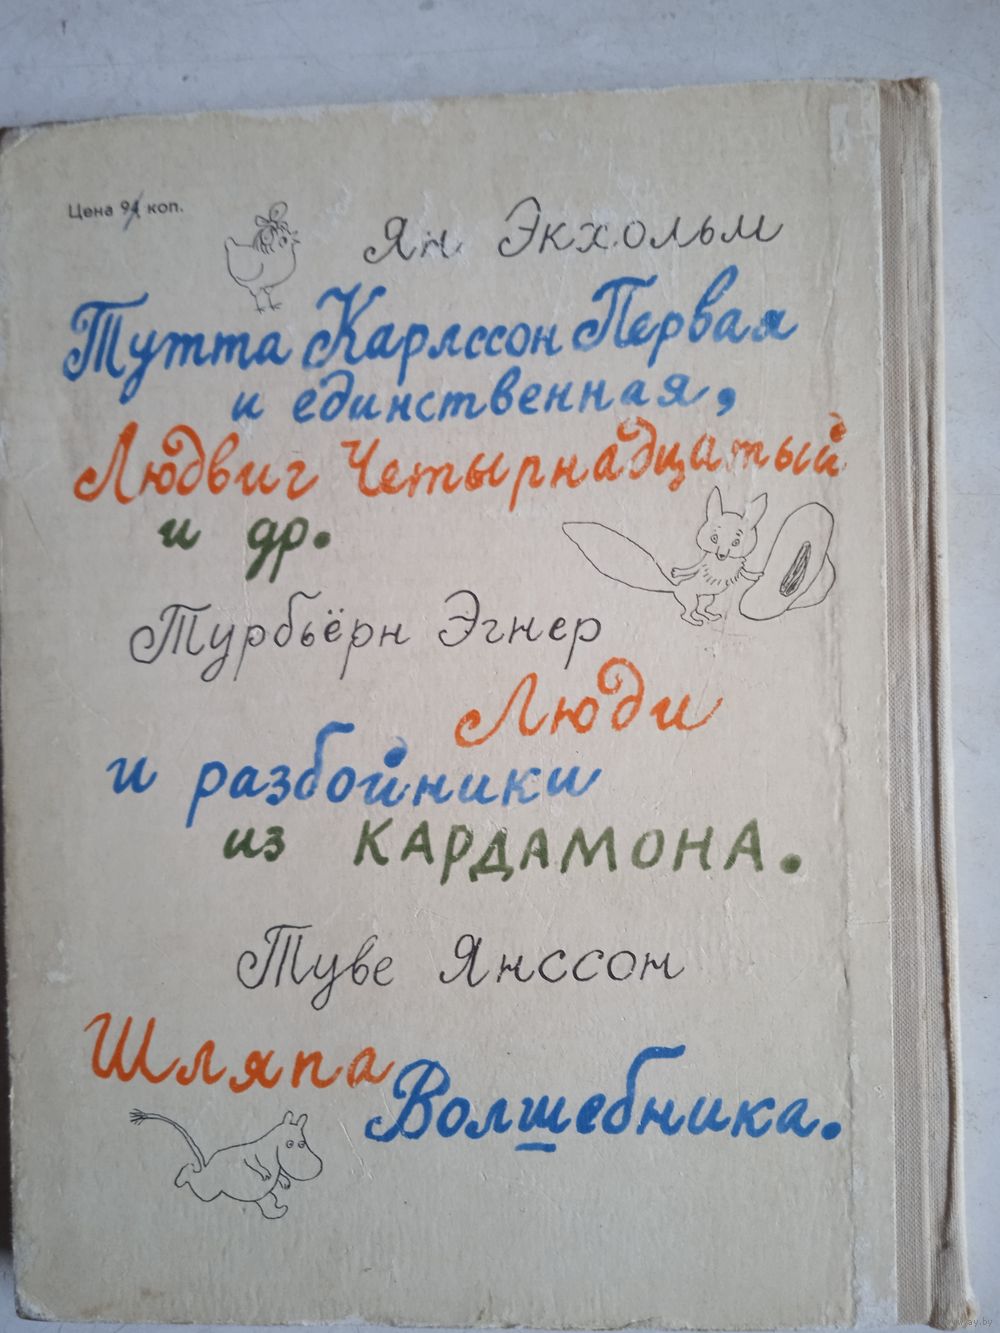 Цена 91 коп.
Ян Экхольм
Тутта Карлссон Первая
и единственная,
Людвиг Четырнадцатый
и др.
Турбьёрн Эгнер
Люди
и разбойники
из КАРДАМОНА.
Туве Янссон
Шляпа
Волшебника.